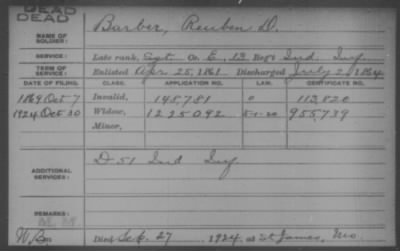 DEAD
DEAD
NAME OF SOLDIER: Barber, Reuben D.
SERVICE: Late rank, Sgt. Co. E, 13 Reg't Ind. Inf.
TERM OF SERVICE: Enlisted Apr 25, 1861. Discharged July 2, 1864
DATE OF FILING. CLASS. APPLICATION NO. LAW. CERTIFICATE NO.
1869 Oct 7 Invalid, 148,781 0 113,820
1924 Oct 20 Widow, 1225092 5-1-20 955,739
Minor,
ADDITIONAL SERVICES: D 51 Ind Inf
REMARKS:
Died Sep. 27 1924, at St James, Mo.